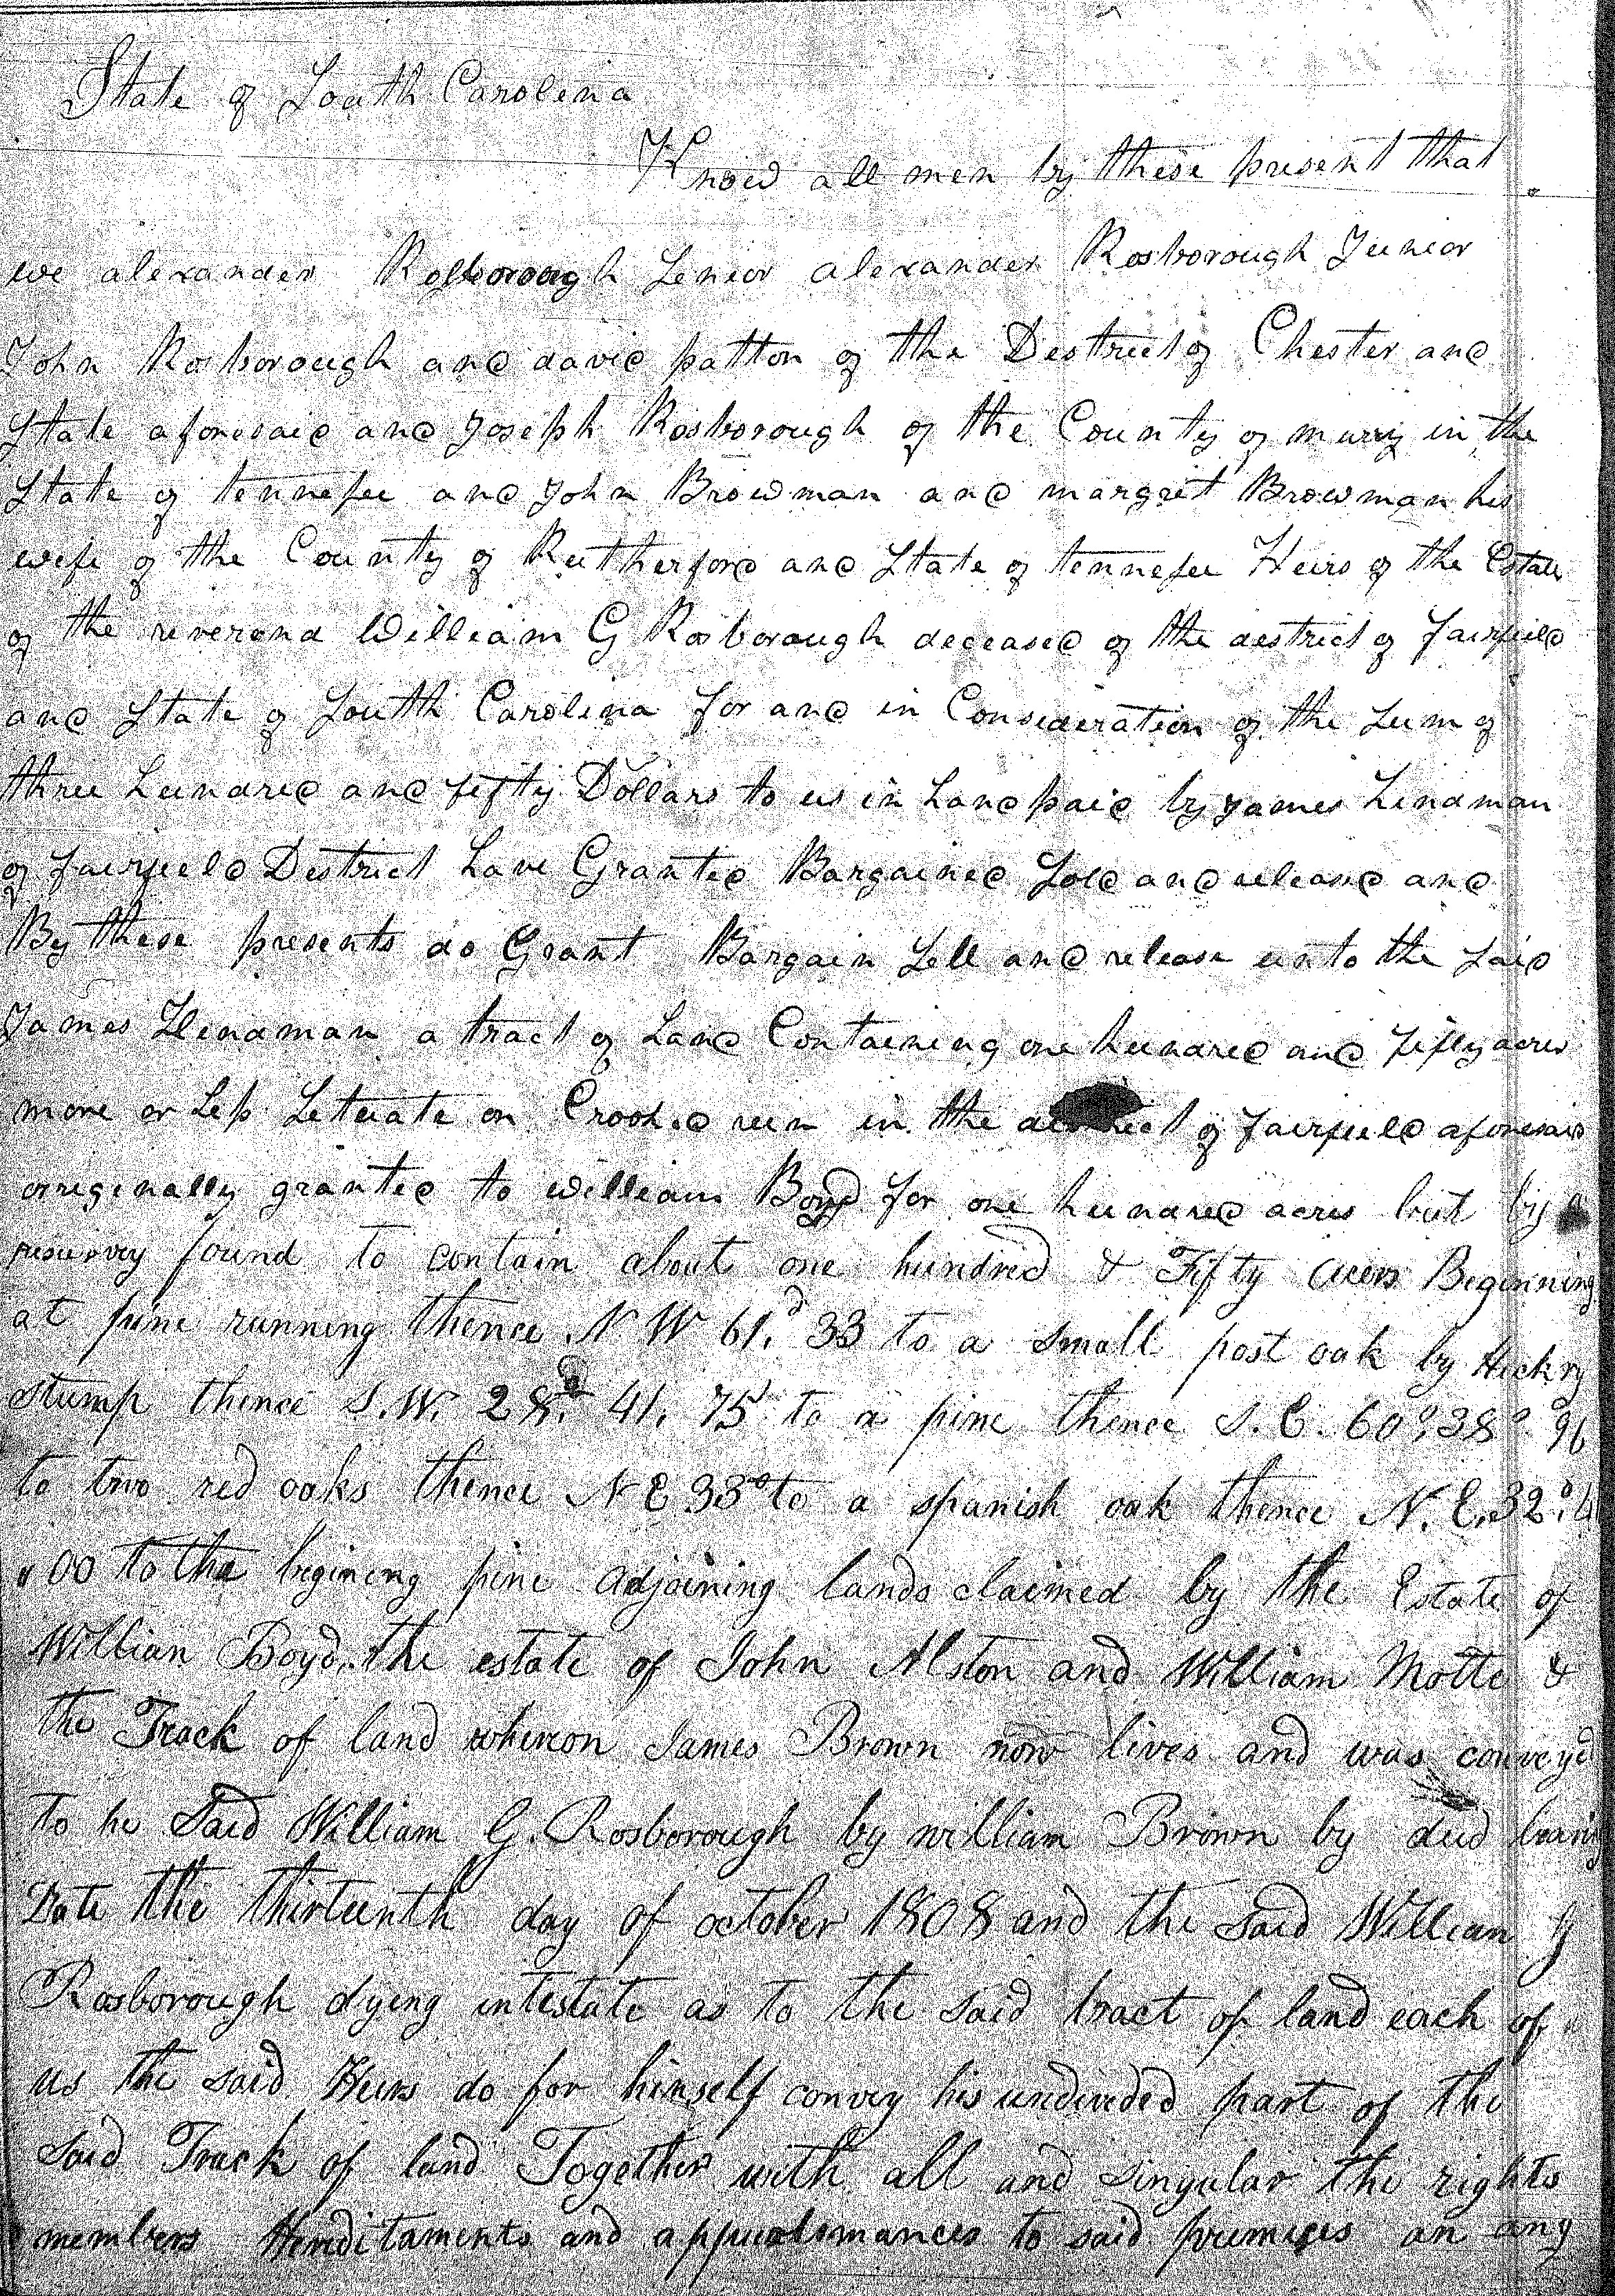 State of South Carolina
Know all men by these present that
we alexander Rosborough Senior alexander Rosborough Junior
John Rosborough and david patton of the Destrict of Chester and
State aforesaid and Joseph Rosborough of the County of murry in the
State of tennessee and John Browman and margret Browman his
wife of the County of Rutherford and State of tennessee Heirs of the Estate
of the reverend William G Rosborough deceased of the destrict of fairfield
and State of South Carolina for and in Consideration of the Sum of
three hundred and fifty Dollars to us in hand paid by James Hindman
of fairfield Destrict have Granted Bargained Sold and released and
By these presents do Grant Bargain Sell and release unto the Said
James Hindman a tract of Land Containing one hundred and fifty acres
more or Less Setuate on Crooked run in the of fairfield aforesaid
orriginally granted to william Boyd for one hundred acres but by
resurvey found to contain about one hundred & Fifty acers Beginning
at pine running thence N W 61.d 33 to a small post oak by Hickry
stump thence S.W. 28.d 41. 75 to a pine thence S. E. 60° 38° 96
to two red oaks thence N E 33° to a spanish oak thence N. E. 32°
00 to the begining pine adjoining lands claimed by the Estate of
Willian Boyd, the estate of John Alston and William Motte &
the Track of land whereon James Brown now lives and was conveyd
to he Said William G. Rosborough by william Brown by deed bearing
Date the thirteenth day of october 1808 and the said William G
Rosborough dying intestate as to the said tract of land each of
us the said Heirs do for himself convey his undivided part of the
said Track of land Together with all and singular the rights
members Hereditaments and to said premises an any